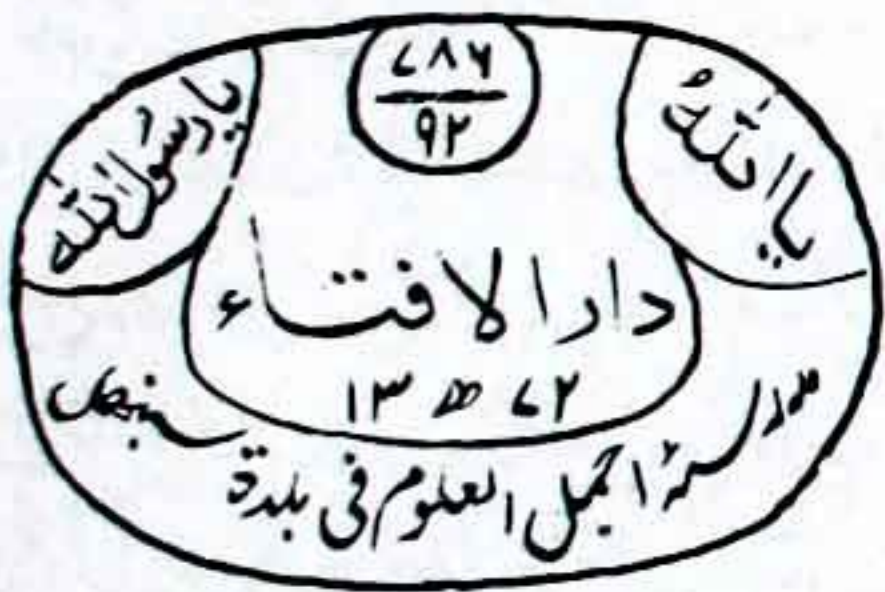 ۷۸۶
۹۲
یا اللہُ
یا رسُول اللہ
دار الافتاء
۱۳ھ۷۲
مدرسہ اجمل العلوم فی بلدۃ سنبھل